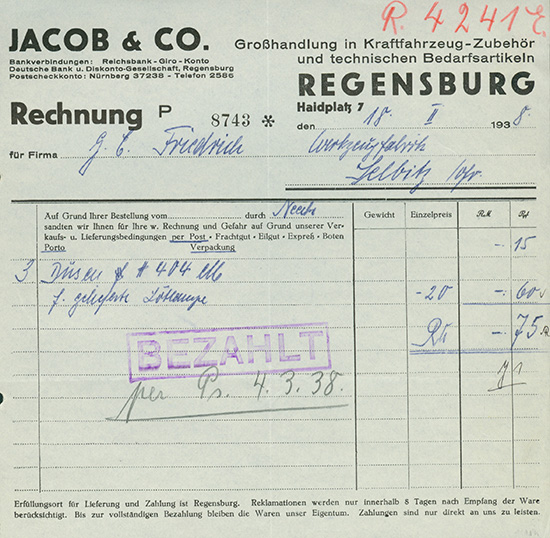 R. 4241 E.
JACOB & CO.
Großhandlung in Kraftfahrzeug-Zubehör
und technischen Bedarfsartikeln
Bankverbindungen: Reichsbank - Giro - Konto
Deutsche Bank u. Diskonto-Gesellschaft, Regensburg
Postscheckkonto: Nürnberg 37238 - Telefon 2586
REGENSBURG
Haidplatz 7
Rechnung P 8743 *
den 18. II 1938.
für Firma G. C. Friedrich Werkzeugfabrik
Selbitz
Auf Grund Ihrer Bestellung vom durch
sandten wir Ihnen für Ihre w. Rechnung und Gefahr auf Grund unserer Ver-
kaufs- u. Lieferungsbedingungen per Post - Frachtgut - Eilgut - Expreß - Boten
Porto Verpackung
Gewicht Einzelpreis RM Rpf
-. 15
3 Düsen # 404
f. gelieferte Lötlampe -20 -. 60
-. 75
BEZAHLT
per Ps. 4.3.38.
71
Erfüllungsort für Lieferung und Zahlung ist Regensburg. Reklamationen werden nur innerhalb 8 Tagen nach Empfang der Ware
berücksichtigt. Bis zur vollständigen Bezahlung bleiben die Waren unser Eigentum. Zahlungen sind nur direkt an uns zu leisten.